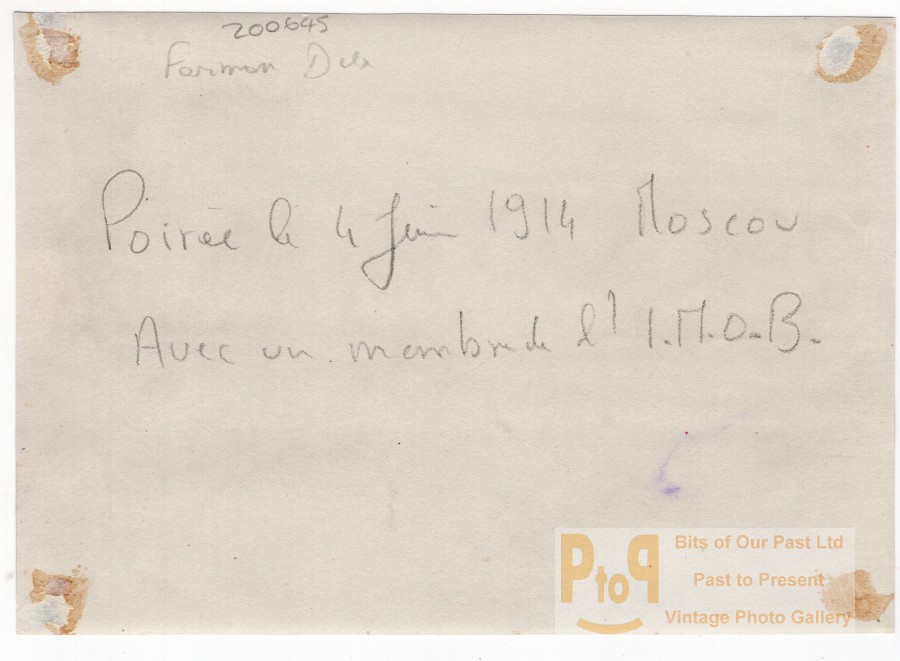 200645
Farman
Poirée le 4 Juin 1914 Moscou
Avec un membre de l'I.M.O.B.
PtoP
Bits of Our Past Ltd
Past to Present
Vintage Photo Gallery